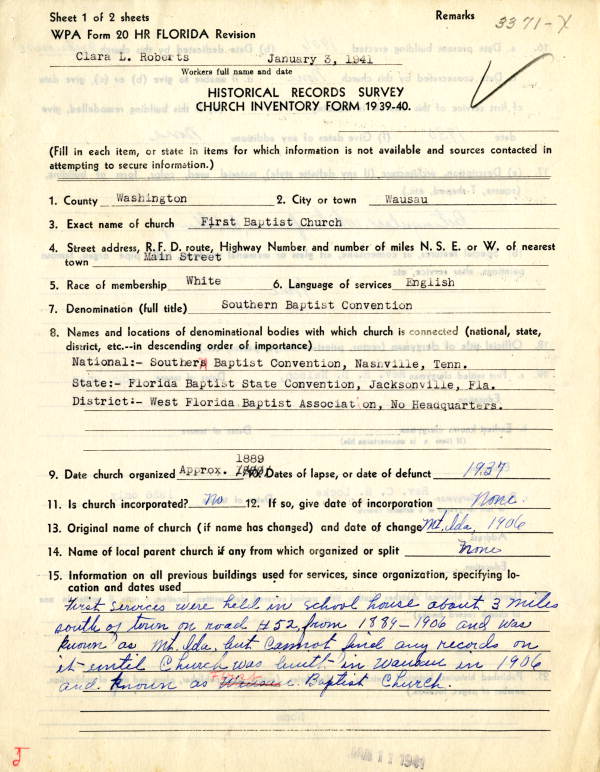 Sheet 1 of 2 sheets
Remarks
3371-X
WPA Form 20 HR FLORIDA Revision
Clara L. Roberts January 3, 1941
Workers full name and date
HISTORICAL RECORDS SURVEY
CHURCH INVENTORY FORM 1939-40.
(Fill in each item, or state in items for which information is not available and sources contacted in
attempting to secure information.)
1. County Washington 2. City or town Wausau
3. Exact name of church First Baptist Church
4. Street address, R.F.D. route, Highway Number and number of miles N. S. E. or W. of nearest
town Main Street
5. Race of membership White 6. Language of services English
7. Denomination (full title) Southern Baptist Convention
8. Names and locations of denominational bodies with which church is connected (national, state,
district, etc.--in descending order of importance)
National:- Southern Baptist Convention, Nashville, Tenn.
State:- Florida Baptist State Convention, Jacksonville, Fla.
District:- West Florida Baptist Association, No Headquarters.
1889
9. Date church organized Approx. 10. Dates of lapse, or date of defunct 1937
11. Is church incorporated? No 12. If so, give date of incorporation None
13. Original name of church (if name has changed) and date of change Mt. Ida, 1906
14. Name of local parent church if any from which organized or split none
15. Information on all previous buildings used for services, since organization, specifying lo-
cation and dates used
First services were held in school house about 3 miles
south of town on road #52, from 1889-1906 and was
known as Mt. Ida, but cannot find any records on
it until Church was built in Wausau in 1906
and known as Wausau Baptist Church.
JAN 11 1941